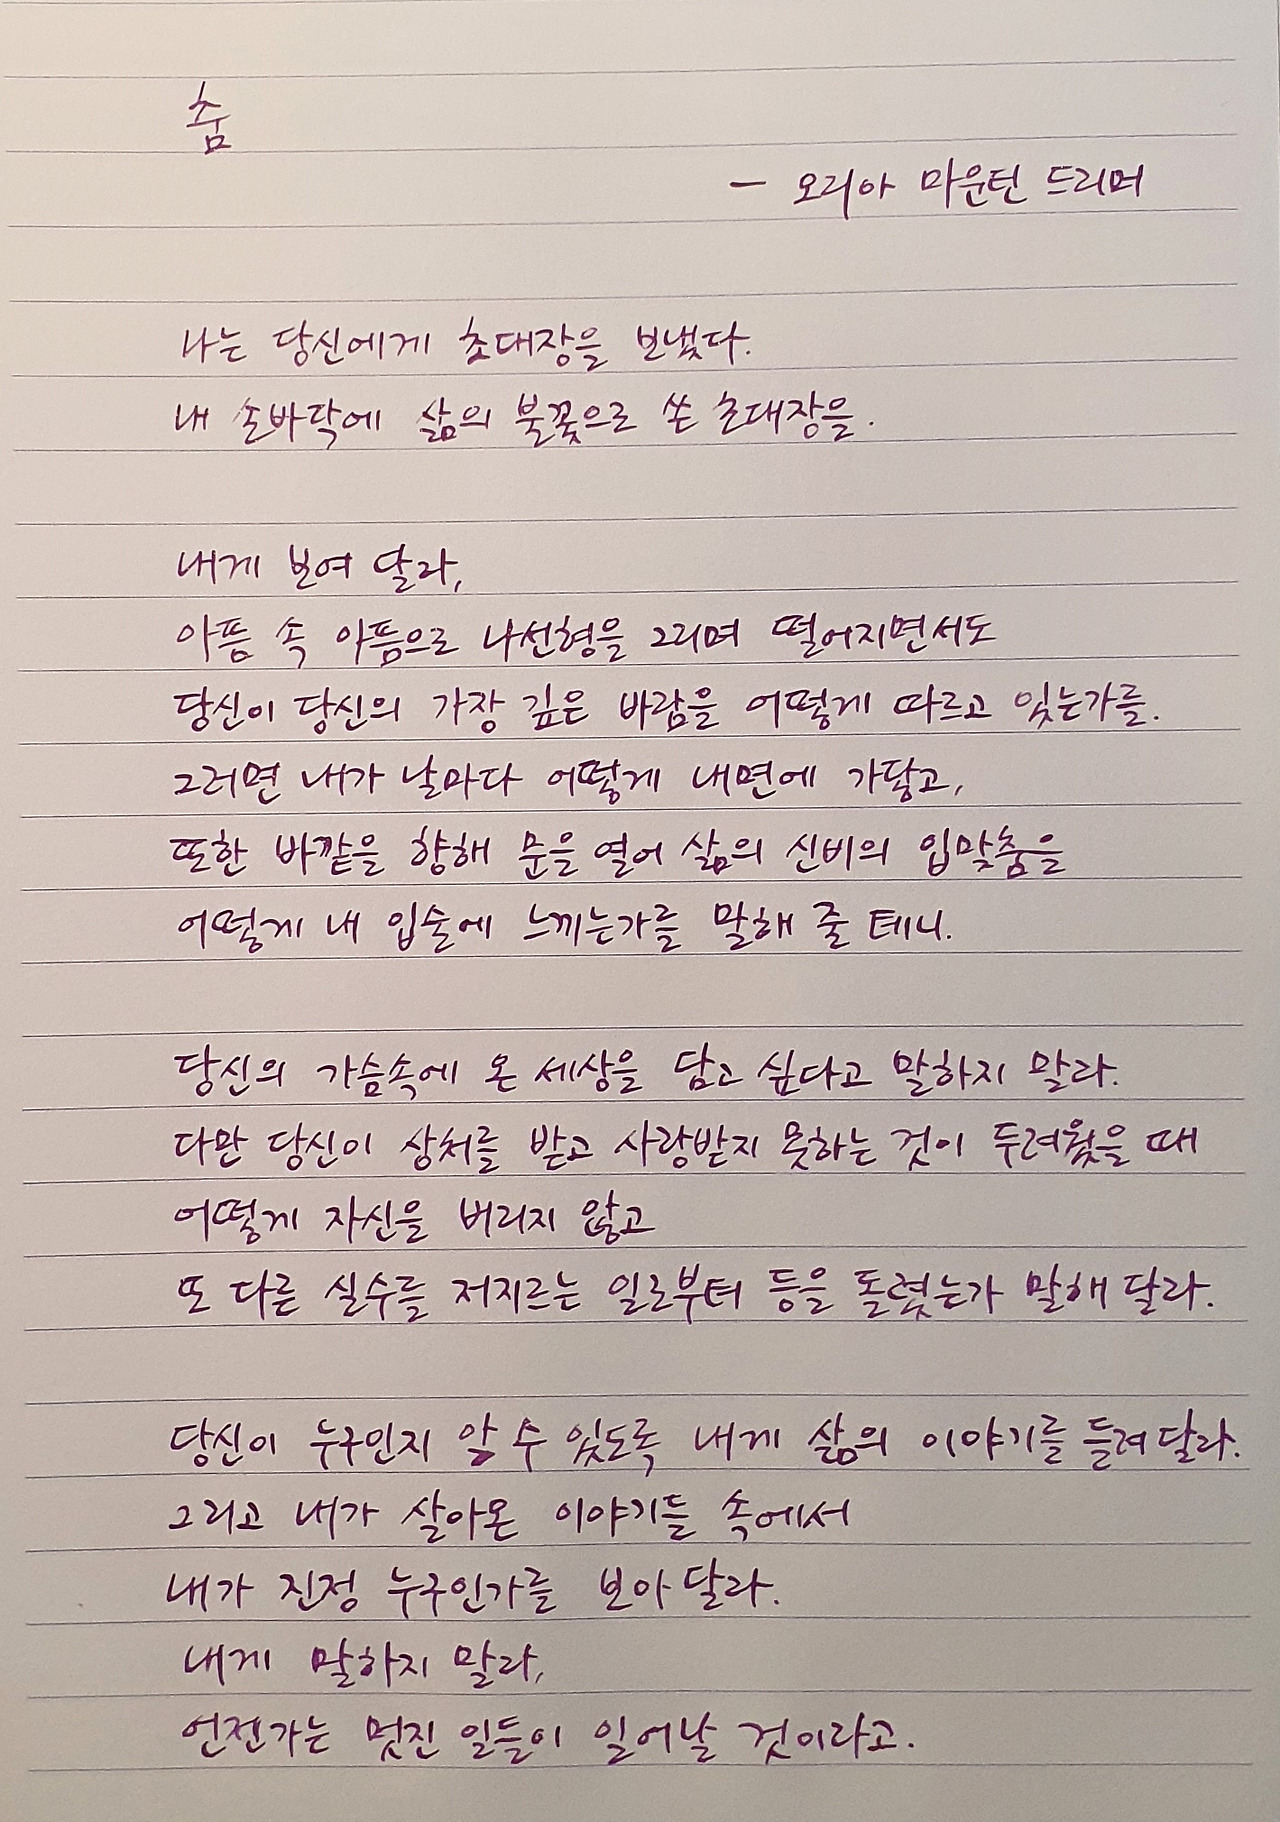 춤
- 오리아 마운틴 드리머
나는 당신에게 초대장을 보냈다.
내 손바닥에 삶의 불꽃으로 쓴 초대장을.
내게 보여 달라,
아픔 속 아픔으로 나선형을 그리며 떨어지면서도
당신이 당신의 가장 깊은 바람을 어떻게 따르고 있는가를.
그러면 내가 날마다 어떻게 내면에 가닿고,
또한 바깥을 향해 문을 열어 삶의 신비의 입맞춤을
어떻게 내 입술에 느끼는가를 말해 줄 테니.
당신의 가슴속에 온 세상을 담고 싶다고 말하지 말라.
다만 당신이 상처를 받고 사랑받지 못하는 것이 두려웠을 때
어떻게 자신을 버리지 않고
또 다른 실수를 저지르는 일로부터 등을 돌렸는가 말해 달라.
당신이 누구인지 알 수 있도록 내게 삶의 이야기를 들려 달라.
그리고 내가 살아온 이야기들 속에서
내가 진정 누구인가를 보아 달라.
내게 말하지 말라,
언젠가는 멋진 일들이 일어날 것이라고.